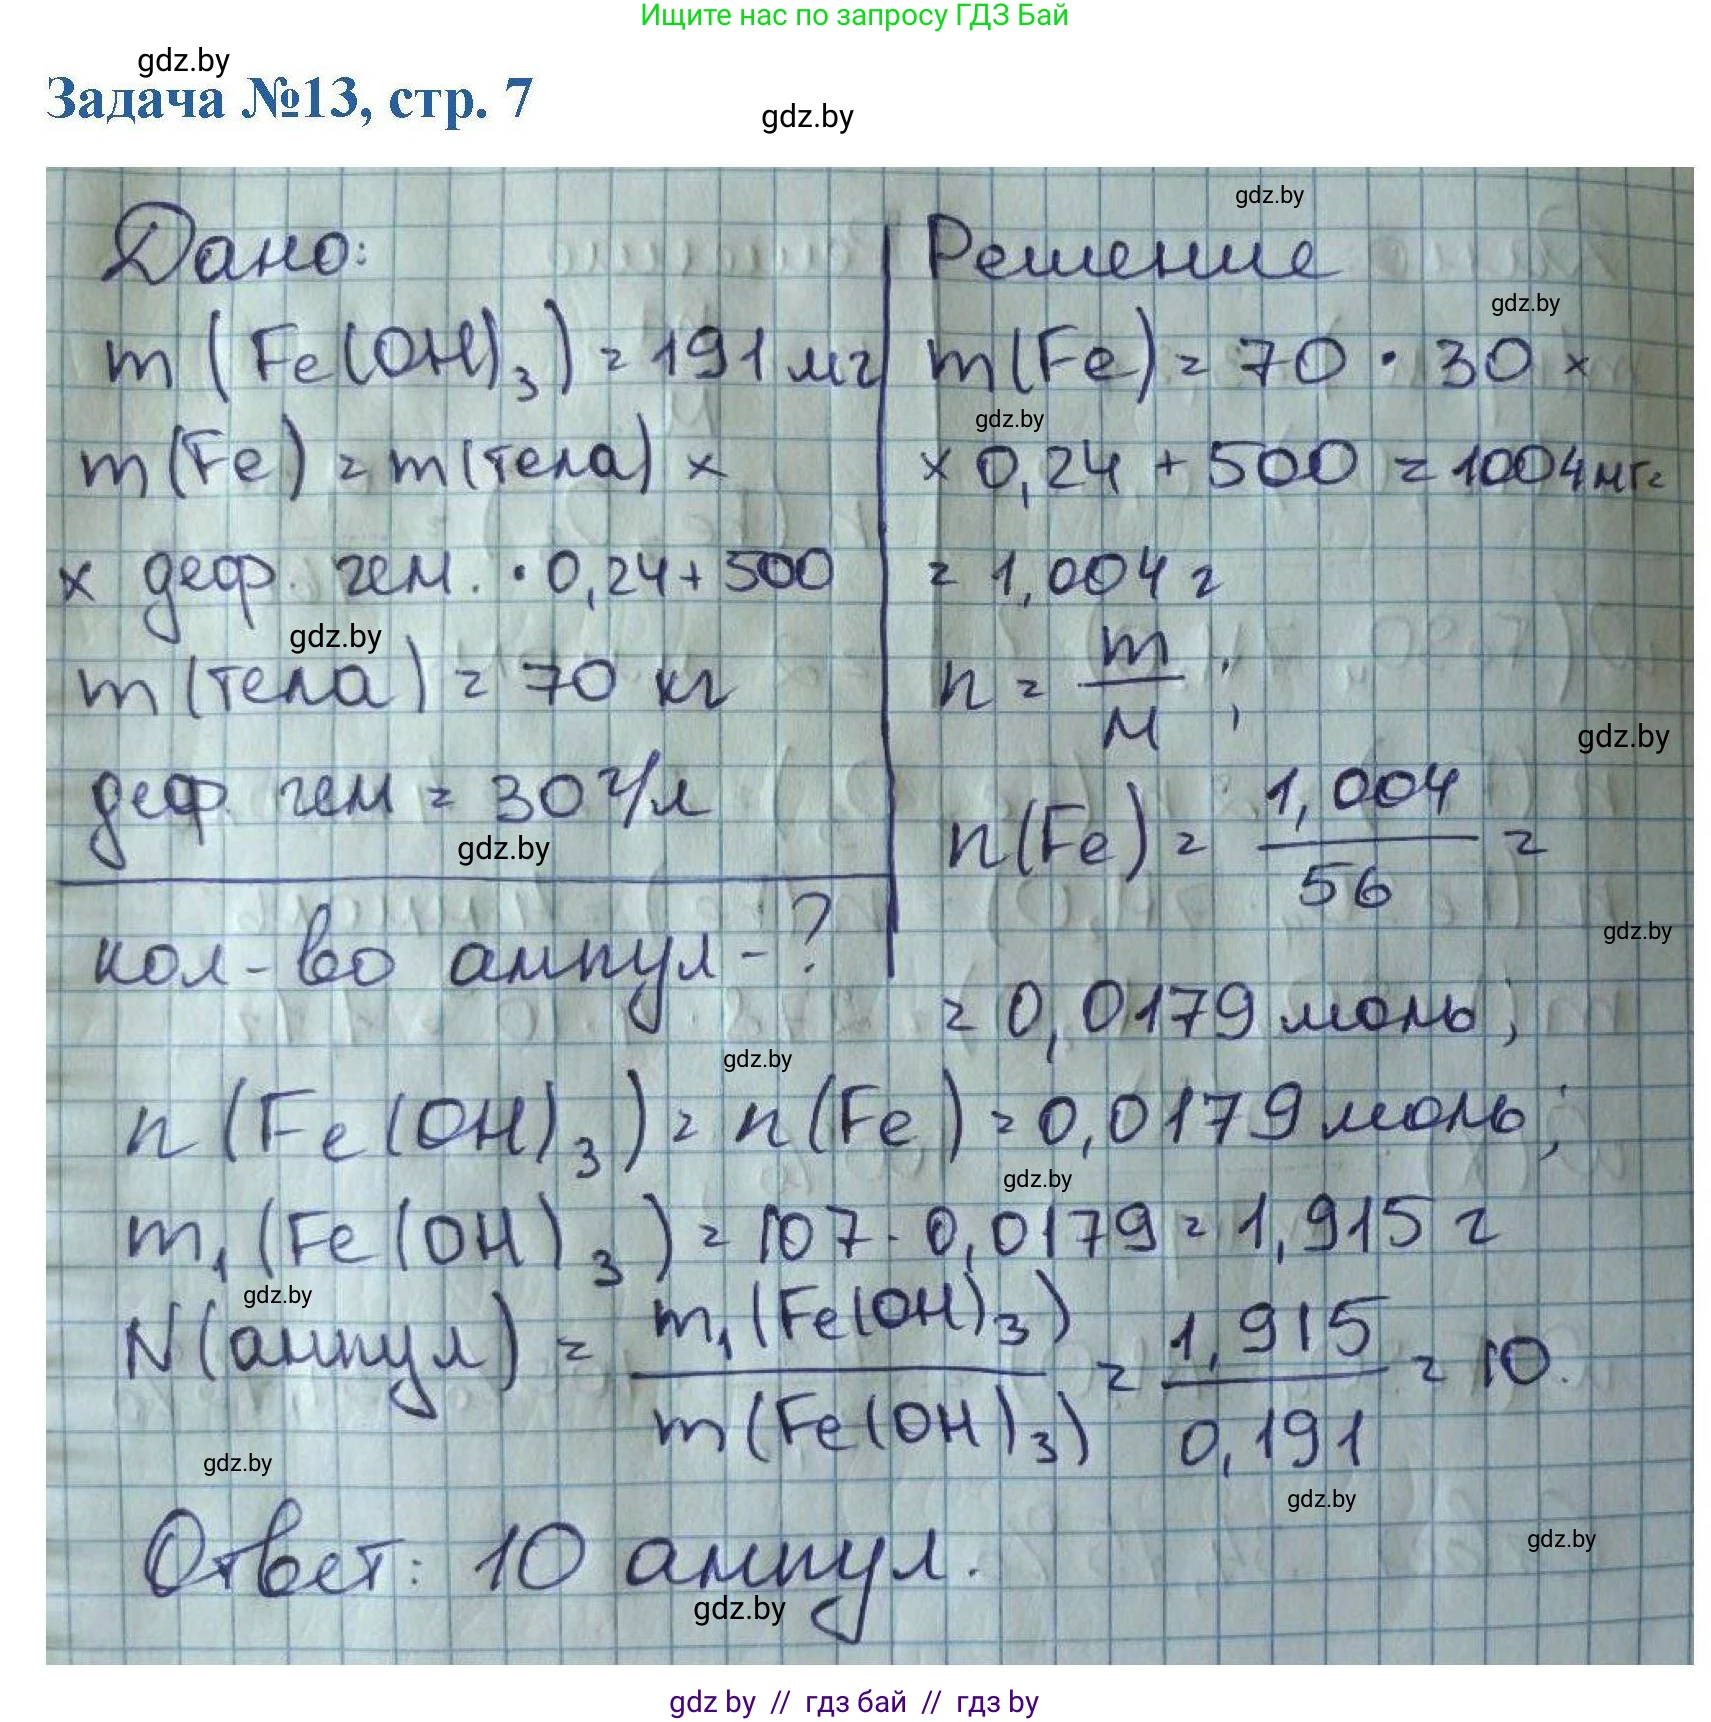 Ищите нас по запросу ГДЗ Бай
gdz.by
Задача №13, стр. 7
gdz.by
gdz.by
Дано:
m (Fe(OH)₃) = 191 мг
m(Fe) = m(тела) ×
× деф. гем. · 0,24 + 500
gdz.by
m(тела) = 70 кг
деф. гем = 30 г/л
gdz.by
кол-во ампул - ?
Решение
gdz.by
m(Fe) = 70 · 30 ×
gdz.by
× 0,24 + 500 = 1004 мг =
= 1,004 г
n = m/M ;
gdz.by
n(Fe) = 1,004/56 =
gdz.by
= 0,0179 моль;
gdz.by
n (Fe(OH)₃) = n(Fe) = 0,0179 моль;
gdz.by
m₁(Fe(OH)₃) = 107 · 0,0179 = 1,915 г
gdz.by
N(ампул) = m₁(Fe(OH)₃)/m(Fe(OH)₃) = 1,915/0,191 = 10.
gdz.by
gdz.by
gdz.by
Ответ: 10 ампул.
gdz.by
gdz by // гдз бай // гдз by